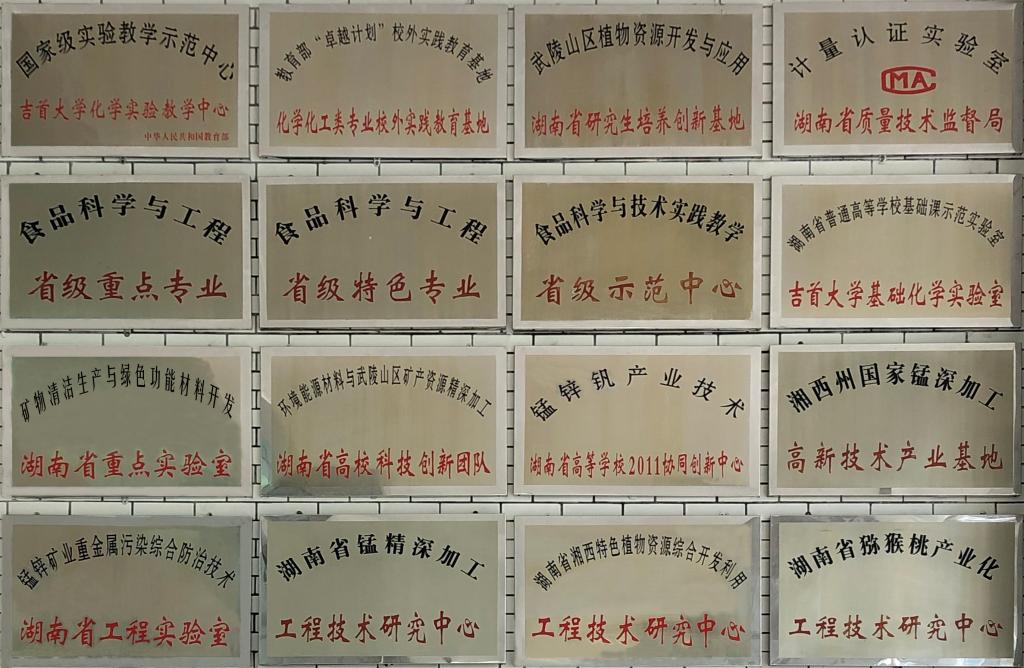 国家级实验教学示范中心
吉首大学化学实验教学中心
中华人民共和国教育部
教育部“卓越计划”校外实践教育基地
化学化工类专业校外实践教育基地
武陵山区植物资源开发与应用
湖南省研究生培养创新基地
计量认证实验室
CMA
湖南省质量技术监督局
食品科学与工程
省级重点专业
食品科学与工程
省级特色专业
食品科学与技术实践教学
省级示范中心
湖南省普通高等学校基础课示范实验室
吉首大学基础化学实验室
矿物清洁生产与绿色功能材料开发
湖南省重点实验室
环境能源材料与武陵山区矿产资源精深加工
湖南省高校科技创新团队
锰锌钒产业技术
湖南省高等学校2011协同创新中心
湘西州国家锰深加工
高新技术产业基地
锰锌矿业重金属污染综合防治技术
湖南省工程实验室
湖南省锰精深加工
工程技术研究中心
湖南省湘西特色植物资源综合开发利用
工程技术研究中心
湖南省猕猴桃产业化
工程技术研究中心